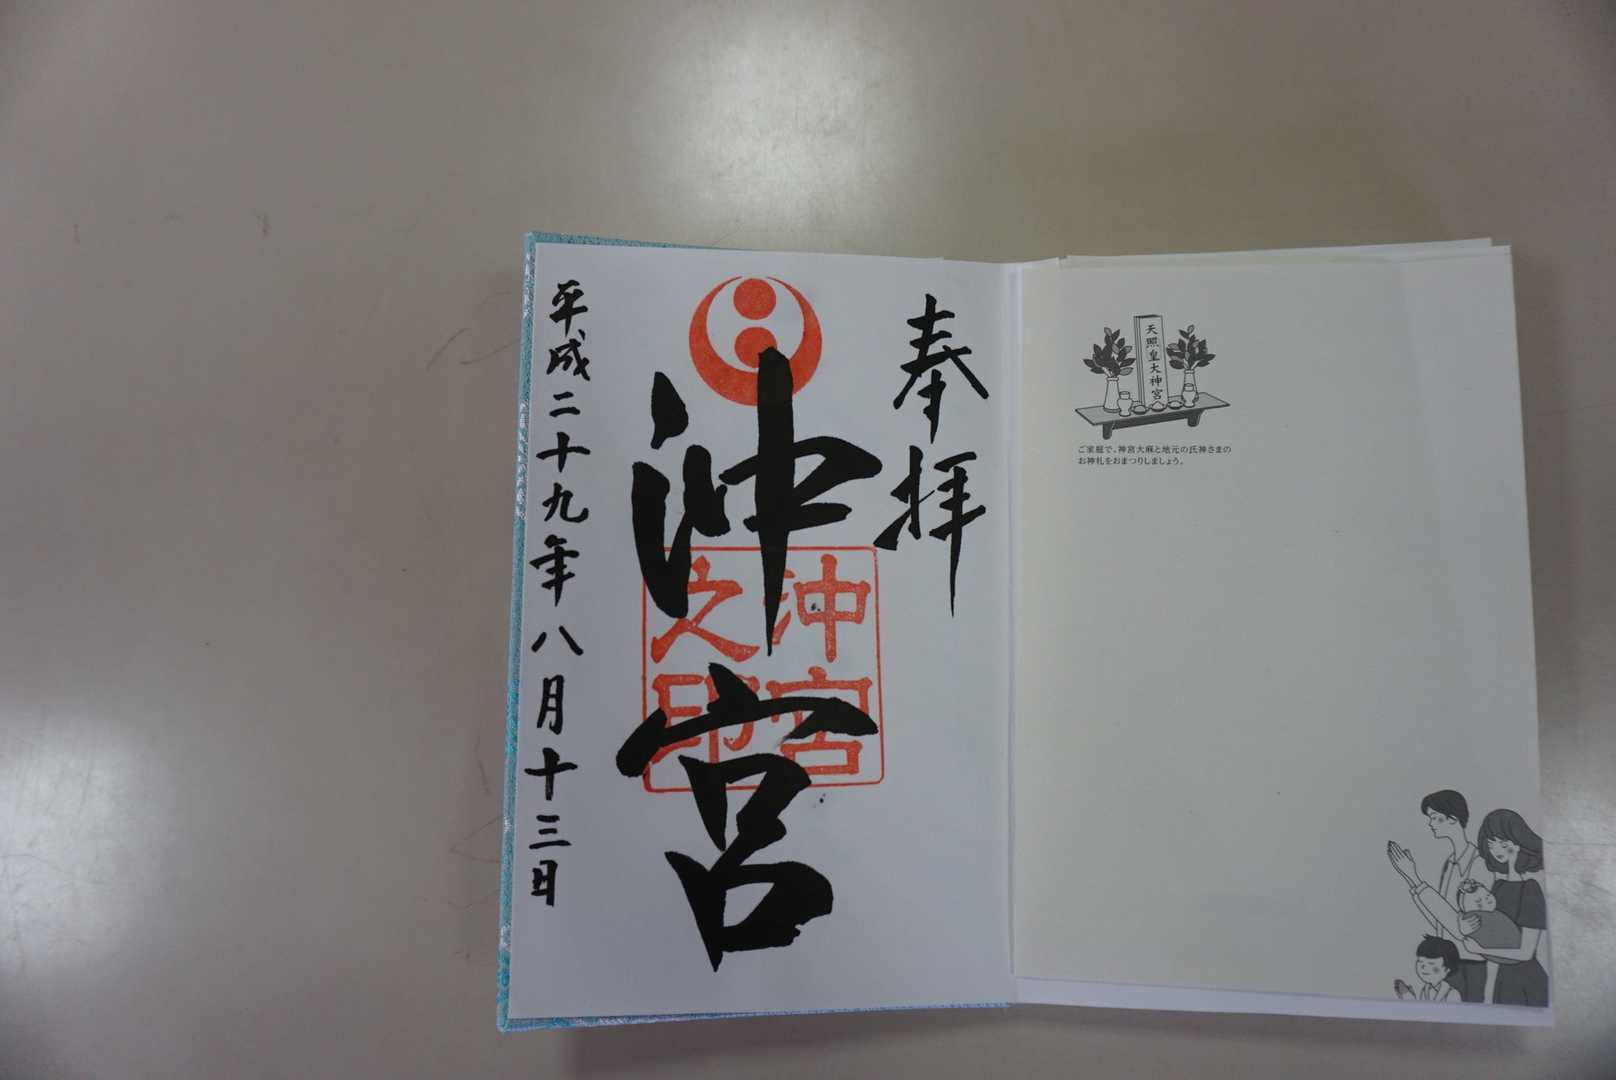 奉拝
沖宮
沖宮
之印
平成二十九年八月十三日
天照皇大神宮
ご家庭で、神宮大麻と地元の氏神さまの
お神札をおまつりしましょう。